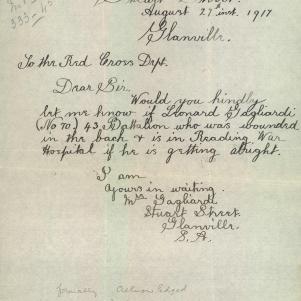 August 27 inst. 1917
Glanville.
To the Red Cross Dept.
Dear Sir.
Would you kindly
let me know if Leonard Gagliardi
(No 70) 43 Battalion who was wounded
in the back & is in Reading War
Hospital if he is getting alright.
I am
Yours in waiting.
Mrs Gagliardi
Stuart Street.
Glanville.
S. A.